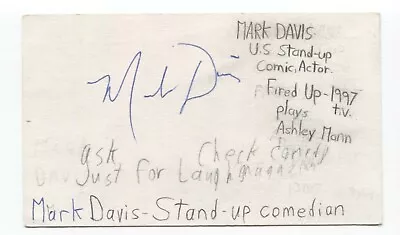 MARK DAVIS
U.S Stand-up
Comic, Actor.
Fired Up-1997
plays t.v.
Ashley Mann
Mark Davis
ask Check
Just for Laugh
Mark Davis-Stand-up comedian